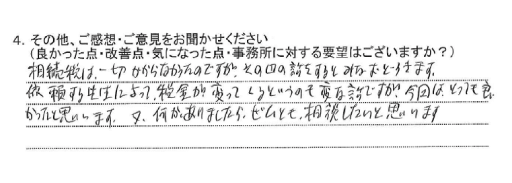 4. その他、ご感想・ご意見をお聞かせください
(良かった点・改善点・気になった点・事務所に対する要望はございますか?)
相続税は、一切かからなかったのですが、その四の話をするとみなおどろきます。
依頼する先生によって、税金が変ってくるというのも変な話ですが、今回は、とっても良
かったと思います。又、何かありましたら、ぜひとも、相談したいと思います